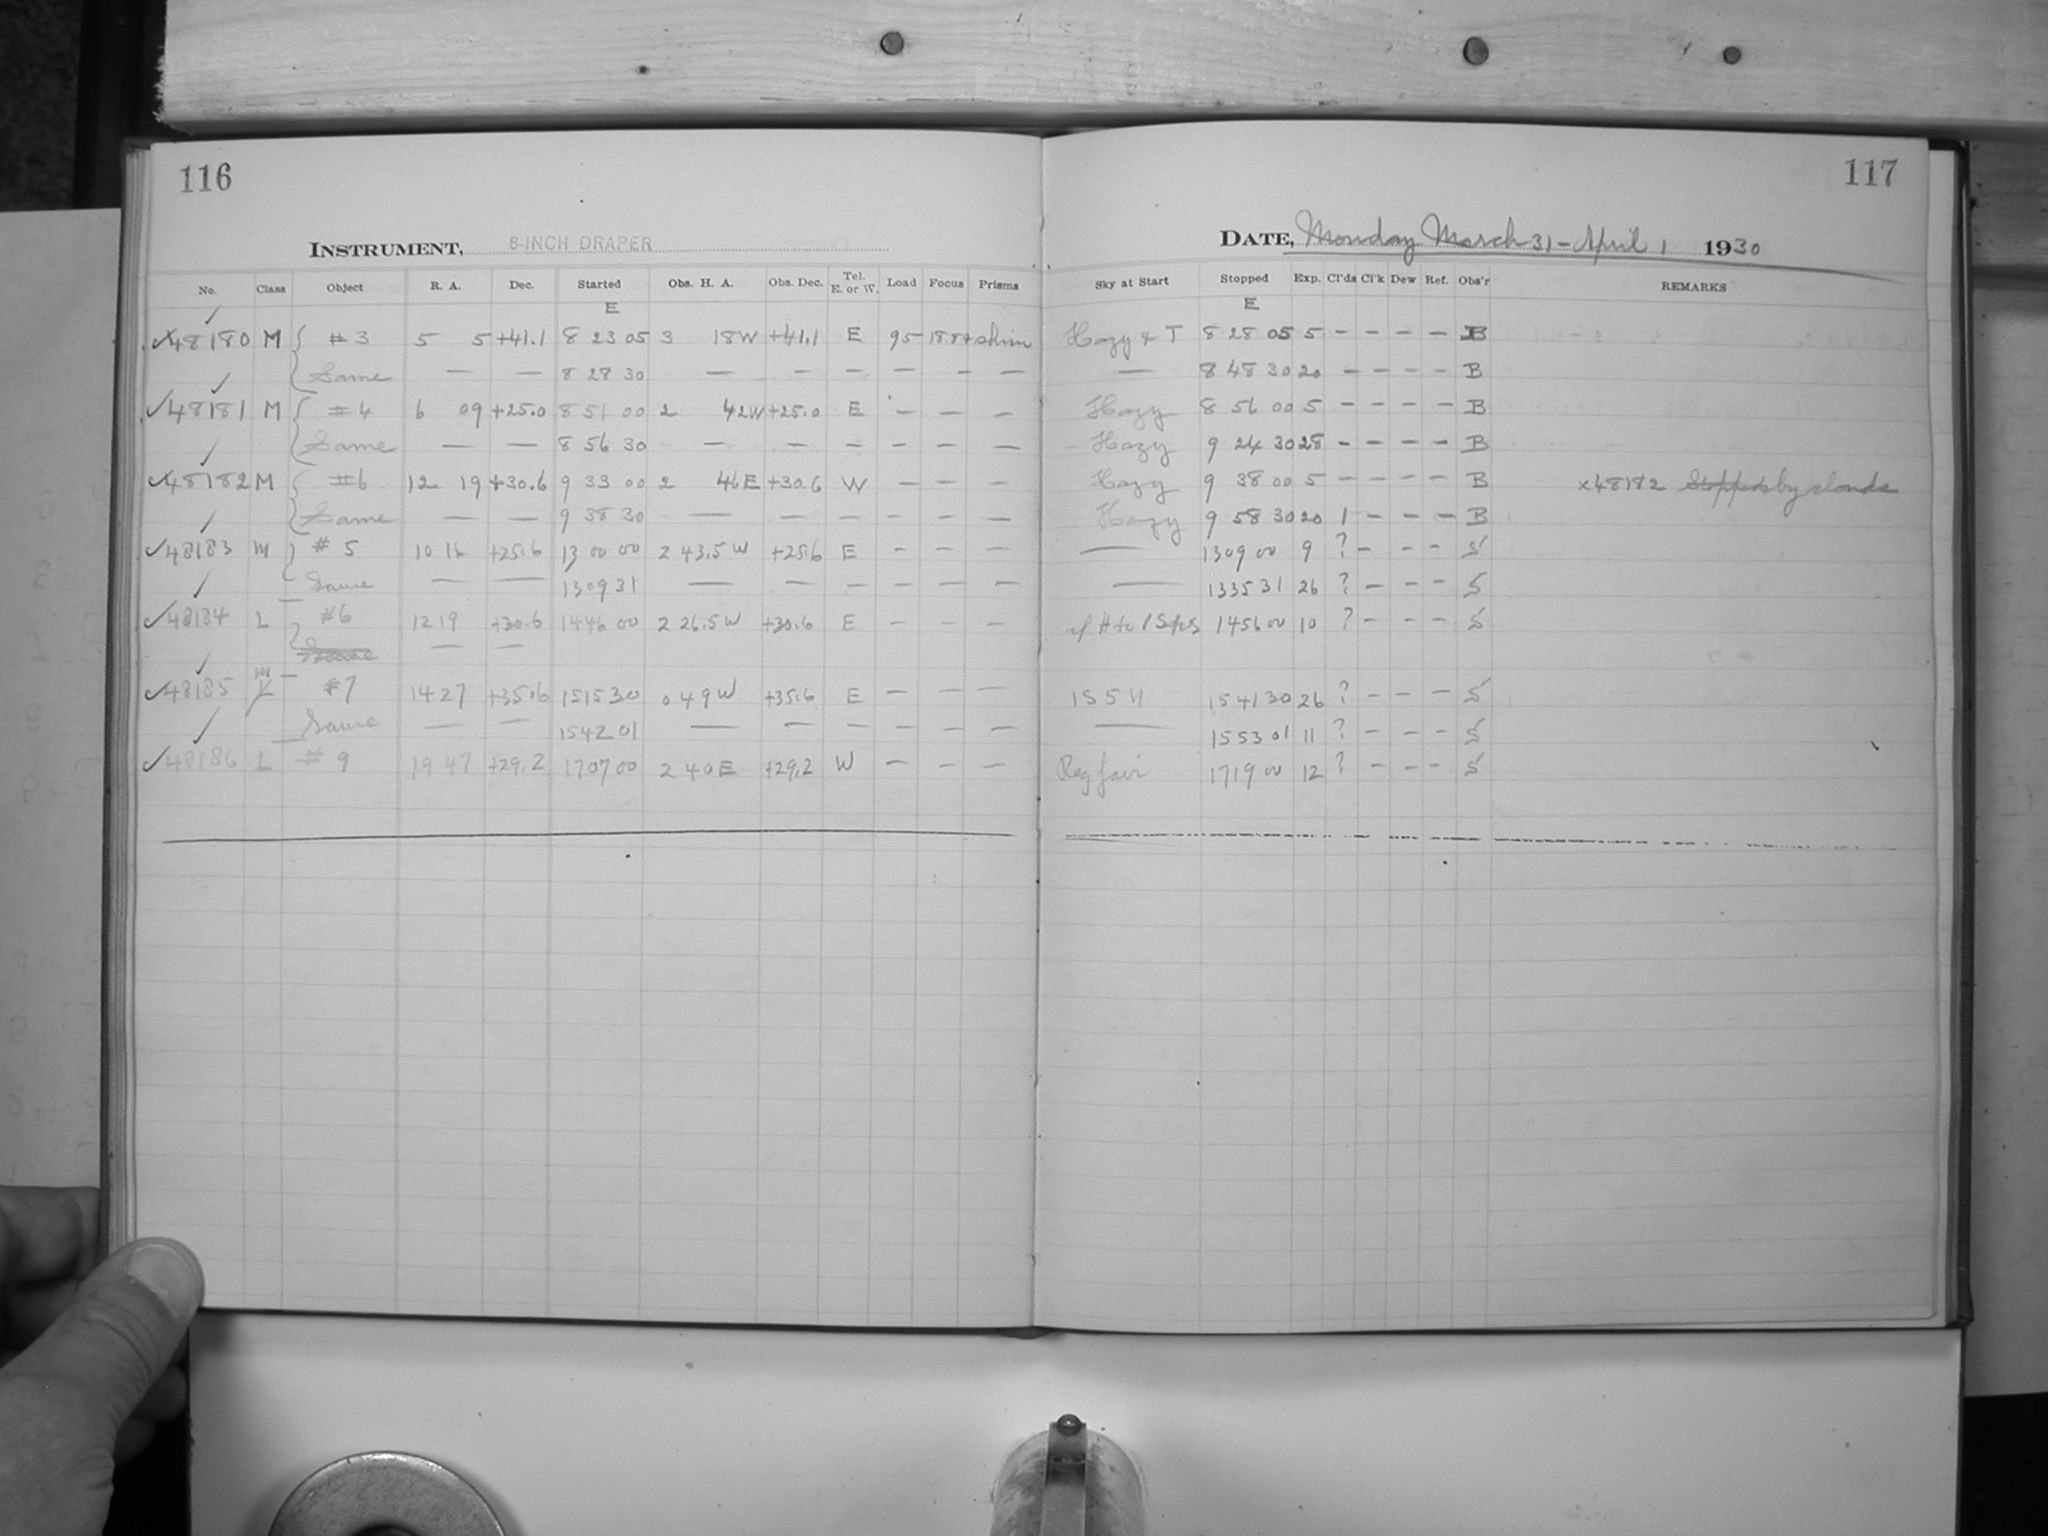 116
INSTRUMENT, 8-INCH DRAPER
No. Class Object R. A. Dec. Started Obs. H. A. Obs. Dec. Tel. E. or W. Load Focus Prisms
E
48180 M #3 5 5 +41.1 8 23 05 3 18W +41.1 E 95
Same — — 8 28 30 — — — — — —
48181 M #4 6 09 +25.0 8 51 00 2 42W +25.0 E — — —
Same — — 8 56 30 — — — — — —
48182 M #6 12 19 +30.6 9 33 00 2 46E +30.6 W — — —
Same — — 9 38 30 — — — — — —
48183 M #5 10 16 +25.6 13 00 00 2 43.5 W +25.6 E — — —
Same — — 13 09 31 — — — — — —
48184 L #6 12 19 +30.6 14 46 00 2 26.5 W +30.6 E — — —
Same — —
48185 M #7 14 27 +35.6 15 15 30 0 49 W +35.6 E — — —
Same — — 15 42 01 — — — — — —
48186 L #9 19 47 +29.2 17 07 00 2 40 E +29.2 W — — —
117
DATE, Monday March 31 - April 1 1930
Sky at Start Stopped Exp. Cl'ds Cl'k Dew Ref. Obs'r REMARKS
E
Hazy & T 8 28 05 5 — — — — B
— 8 48 30 20 — — — — B
Hazy 8 56 00 5 — — — — B
Hazy 9 24 30 28 — — — — B
Hazy 9 38 00 5 — — — — B x48182 Stopped by clouds
Hazy 9 58 30 20 1 — — — B
— 13 09 00 9 ? — — — S
— 13 35 31 26 ? — — — S
14 56 00 10 ? — — — S
15 41 30 26 ? — — — S
— 15 53 01 11 ? — — — S
Reg fair 17 19 00 12 ? — — — S